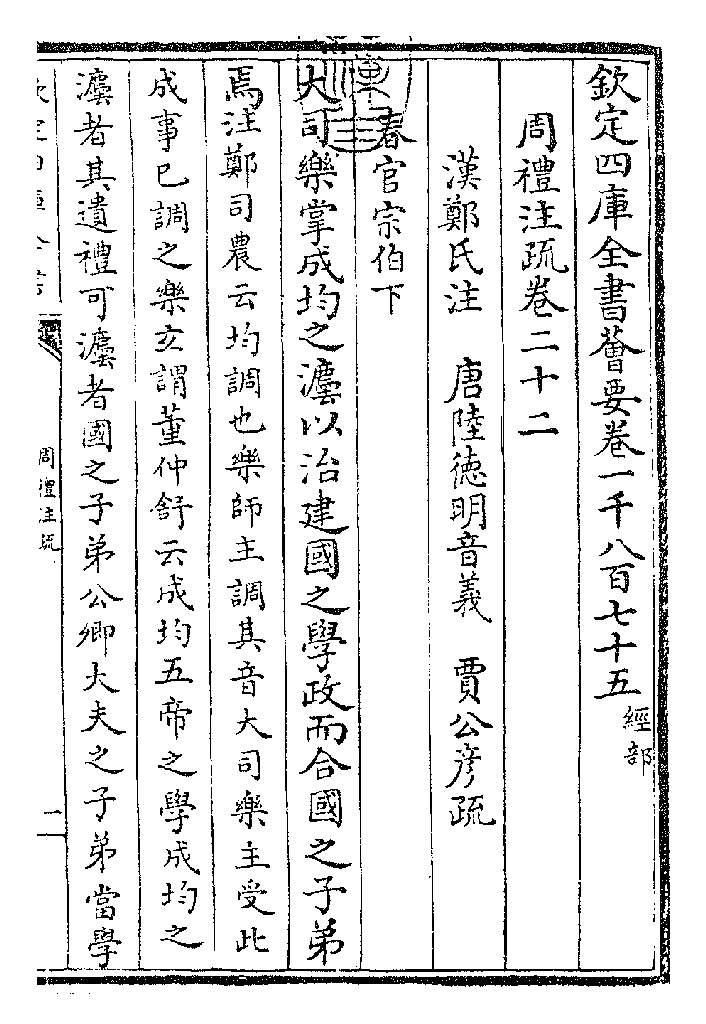 欽定四庫全書薈要卷一千八百七十五經部
周禮注疏卷二十二
漢鄭氏注 唐陸德明音義 賈公彦疏
春官宗伯下
大司樂掌成均之灋以治建國之學政而合國之子弟
焉注鄭司農云均調也樂師主調其音大司樂主受此
成事已調之樂玄謂董仲舒云成均五帝之學成均之
灋者其遺禮可灋者國之子弟公卿大夫之子弟當學
周禮注疏